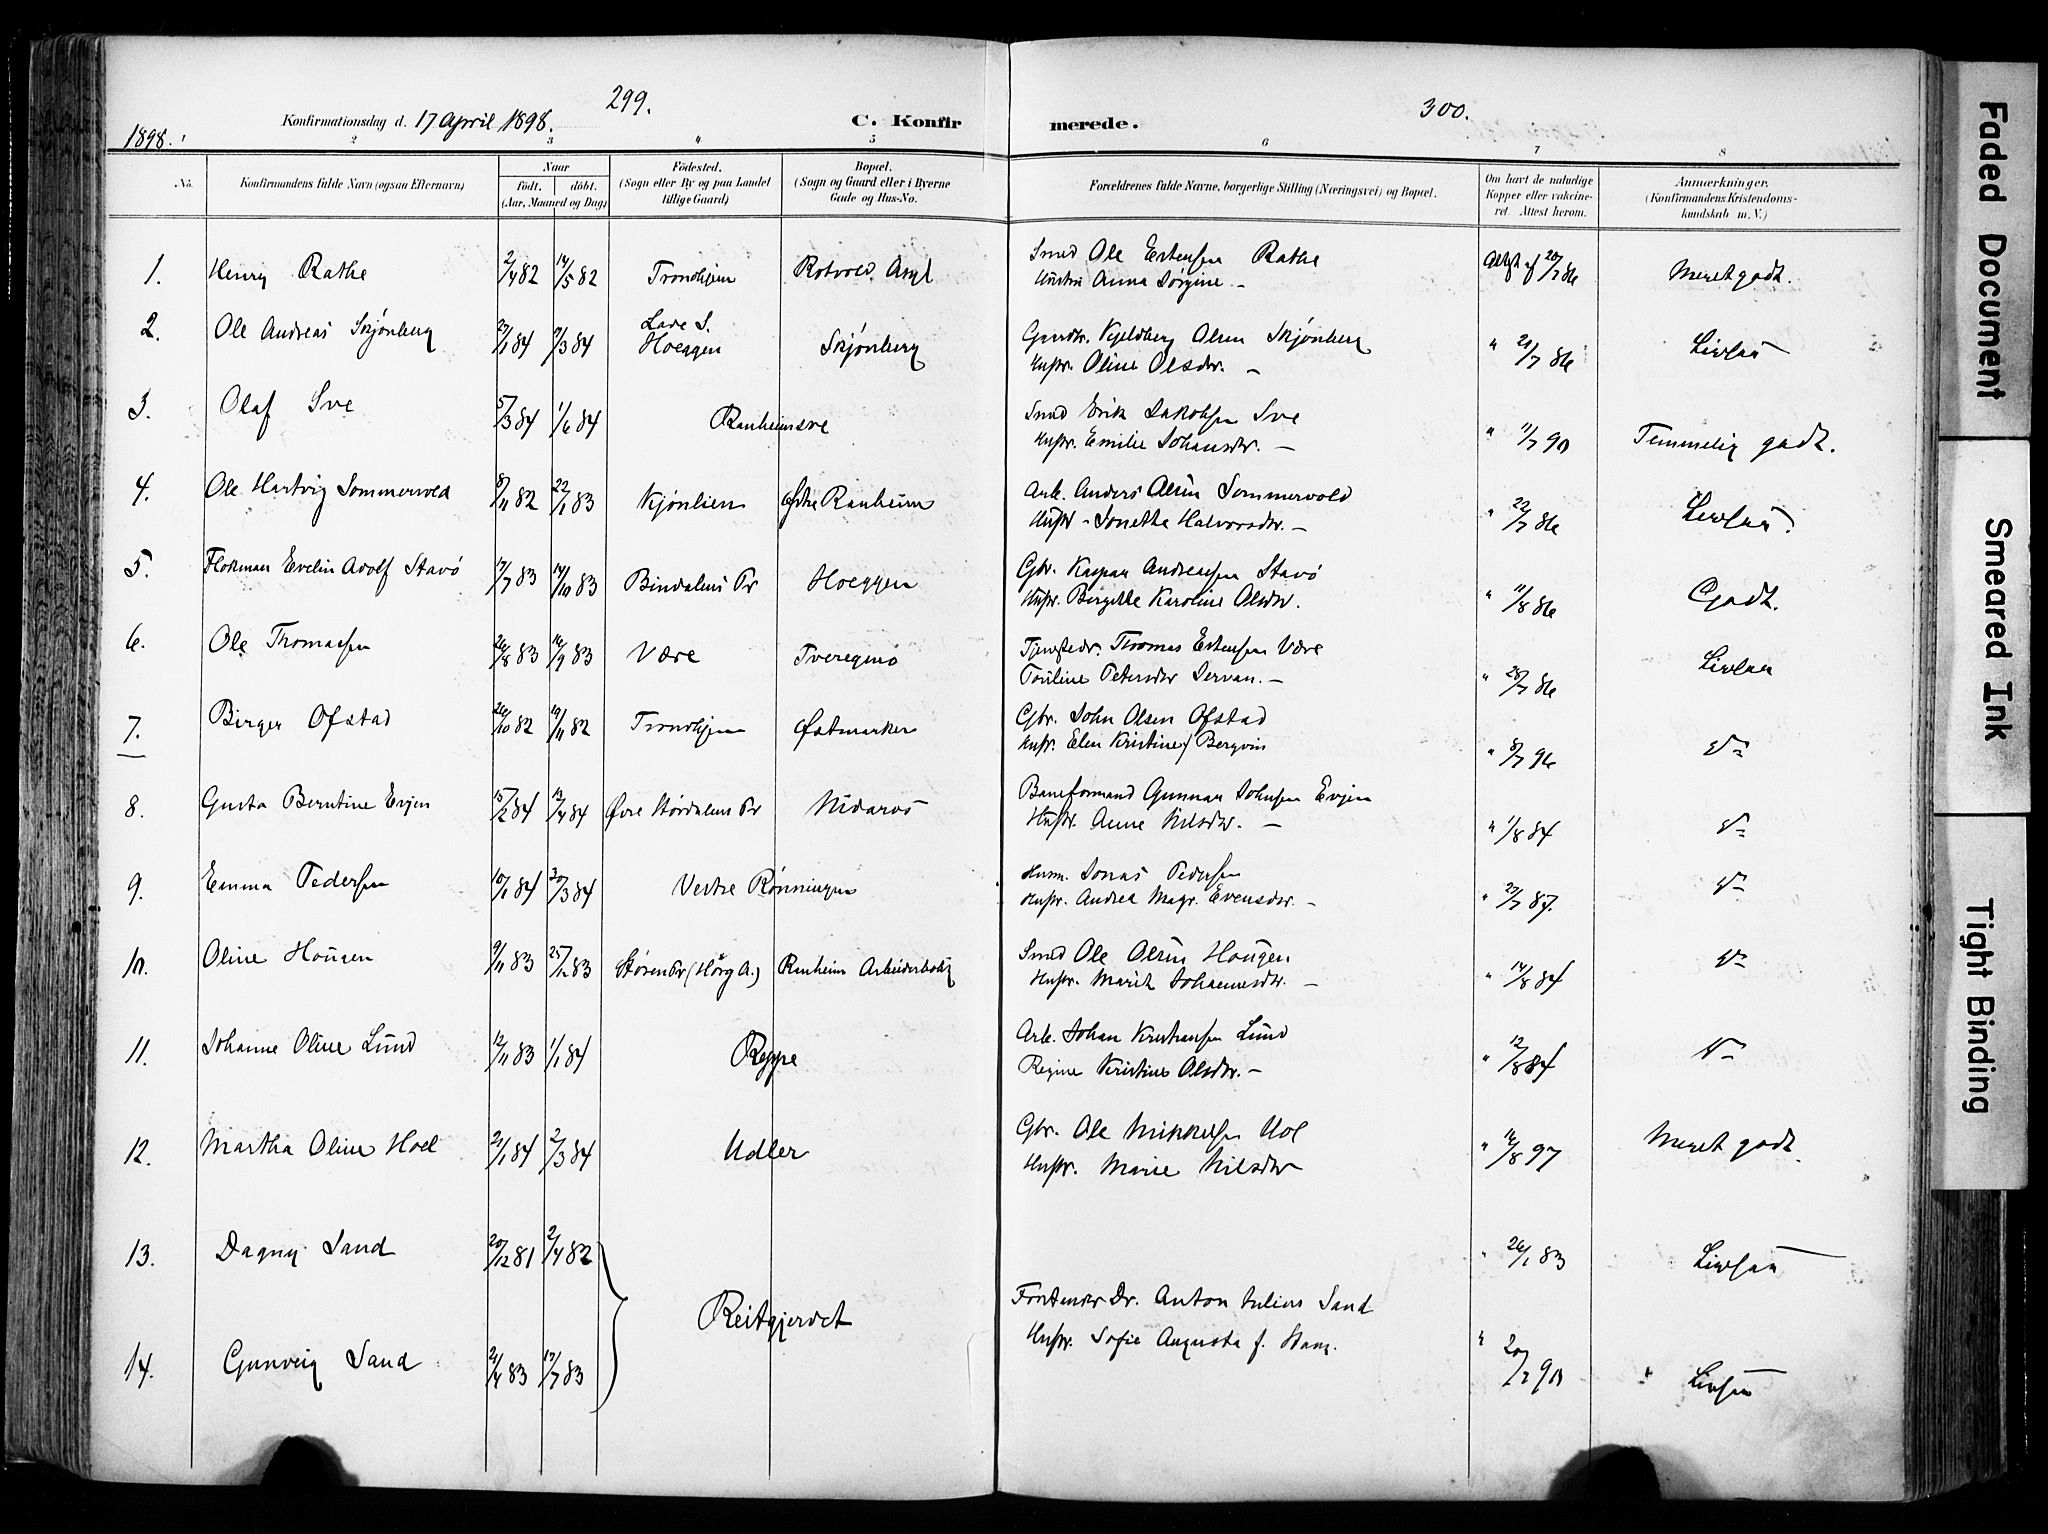 299.
300.
Konfirmationsdag d. 17 April 1898.
C. Konfirmerede.
1898.
2 3 4 5 6 7 8
No.
Konfirmandens fulde Navn (ogsaa Efternavn)
Naar
født. døbt.
(Aar, Maaned og Dag)
Fødested.
(Sogn eller By og paa Landet
tillige Gaard)
Bopæl.
(Sogn og Gaard eller i Byerne
Gade og Hus-No.
Forældrenes fulde Navne, borgerlige Stilling (Næringsvei) og Bopæl.
Om havt de naturlige
Kopper eller vakcine-
ret. Attest herom.
Anmærkninger.
(Konfirmandens Kristendoms-
kundskab m. V.)
1. Henry Rathe 2/4 82 14/5 82 Trondhjem Rotvold Asyl Smed Ole Estensen Rathe
Hustru Anna Jørgine — Attest af 20/7 86 Meget godt.
2. Ole Andreas Skjønberg 27/1 84 9/3 84 Lade S.
Hoeggen Skjønberg Gaardbr. Kjeldberg Olsen Skjønberg
Hustr. Oline Olsdr. — " 21/7 86 Ligesaa
3. Olaf Sve 5/3 84 1/6 84 Ranheimsve Smed Erik Jakobsen Sve
Hustr. Emilie Johansdr. — " 11/7 90 Temmelig godt.
4. Ole Hartvig Sommervold 8/11 82 22/1 83 Kjønlien Østre Ranheim Arb. Anders Olsen Sommervold
Hustr - Jonetta Halvorsdr. — " 22/7 86 Ligesaa.
5. Evelin Adolf Stavø 17/7 83 14/10 83 Bindalens Pr Hoeggen Gbr. Kaspar Andreassen Stavø
Hustr. Birgitte Karoline Olsdr. " 11/8 86 Godt.
6. Ole Thomassen 26/8 83 16/9 83 Være Tveregmo Thomas Estensen Være
Petersdr — " 28/7 86 Ligesaa
7. Birger Ofstad 26/10 82 19/11 82 Trondhjem Østmarken Gbr. John Olsen Ofstad
Hustr. Elen Kristine f Bergvin " 8/7 96 do
8. Gusta Berntine Evjen 15/2 84 13/4 84 Øvre Størdalens Pr Nidarvo Baneformand Gunnar Johnsen Evjen
Hustr. Anne Nilsdr. — " 1/8 84 do
9. Emma Pedersen 10/1 84 30/3 84 Vestre Rønningen Husm. Jonas Pedersen
Hustr. Andrea Magr. Evensdr. — " 27/7 87. do
10. Oline Hougen 9/11 83 25/12 83 Støren Pr (Hørg A.) Ranheim Arbeiderbolig Smed Ole Olsen Hougen
Hustr. Marit Johannesdr. — " 14/8 84 do
11. Johanne Oline Lund 12/11 83 1/1 84 Reppe Arb. Johan Kristiansen Lund
Regine Kristine Olsdr. — " 12/8 84 do
12. Martha Oline Hoel 21/1 84 2/3 84 Udler Gbr. Ole Mikkelsen Hol
Hustr. Marie Nilsdr " 16/8 97 Meget godt.
13. Dagny Sand 20/12 81 2/4 82 " 26/1 83 Ligesaa
Reitgjerdet Dr. Anton Julius Sand
Hustr. Sofie Augusta f. Hang.
14. Gunveig Sand 21/4 83 17/7 83 " 20/7 90 Ligesaa
Faded Document
Smeared Ink
Tight Binding